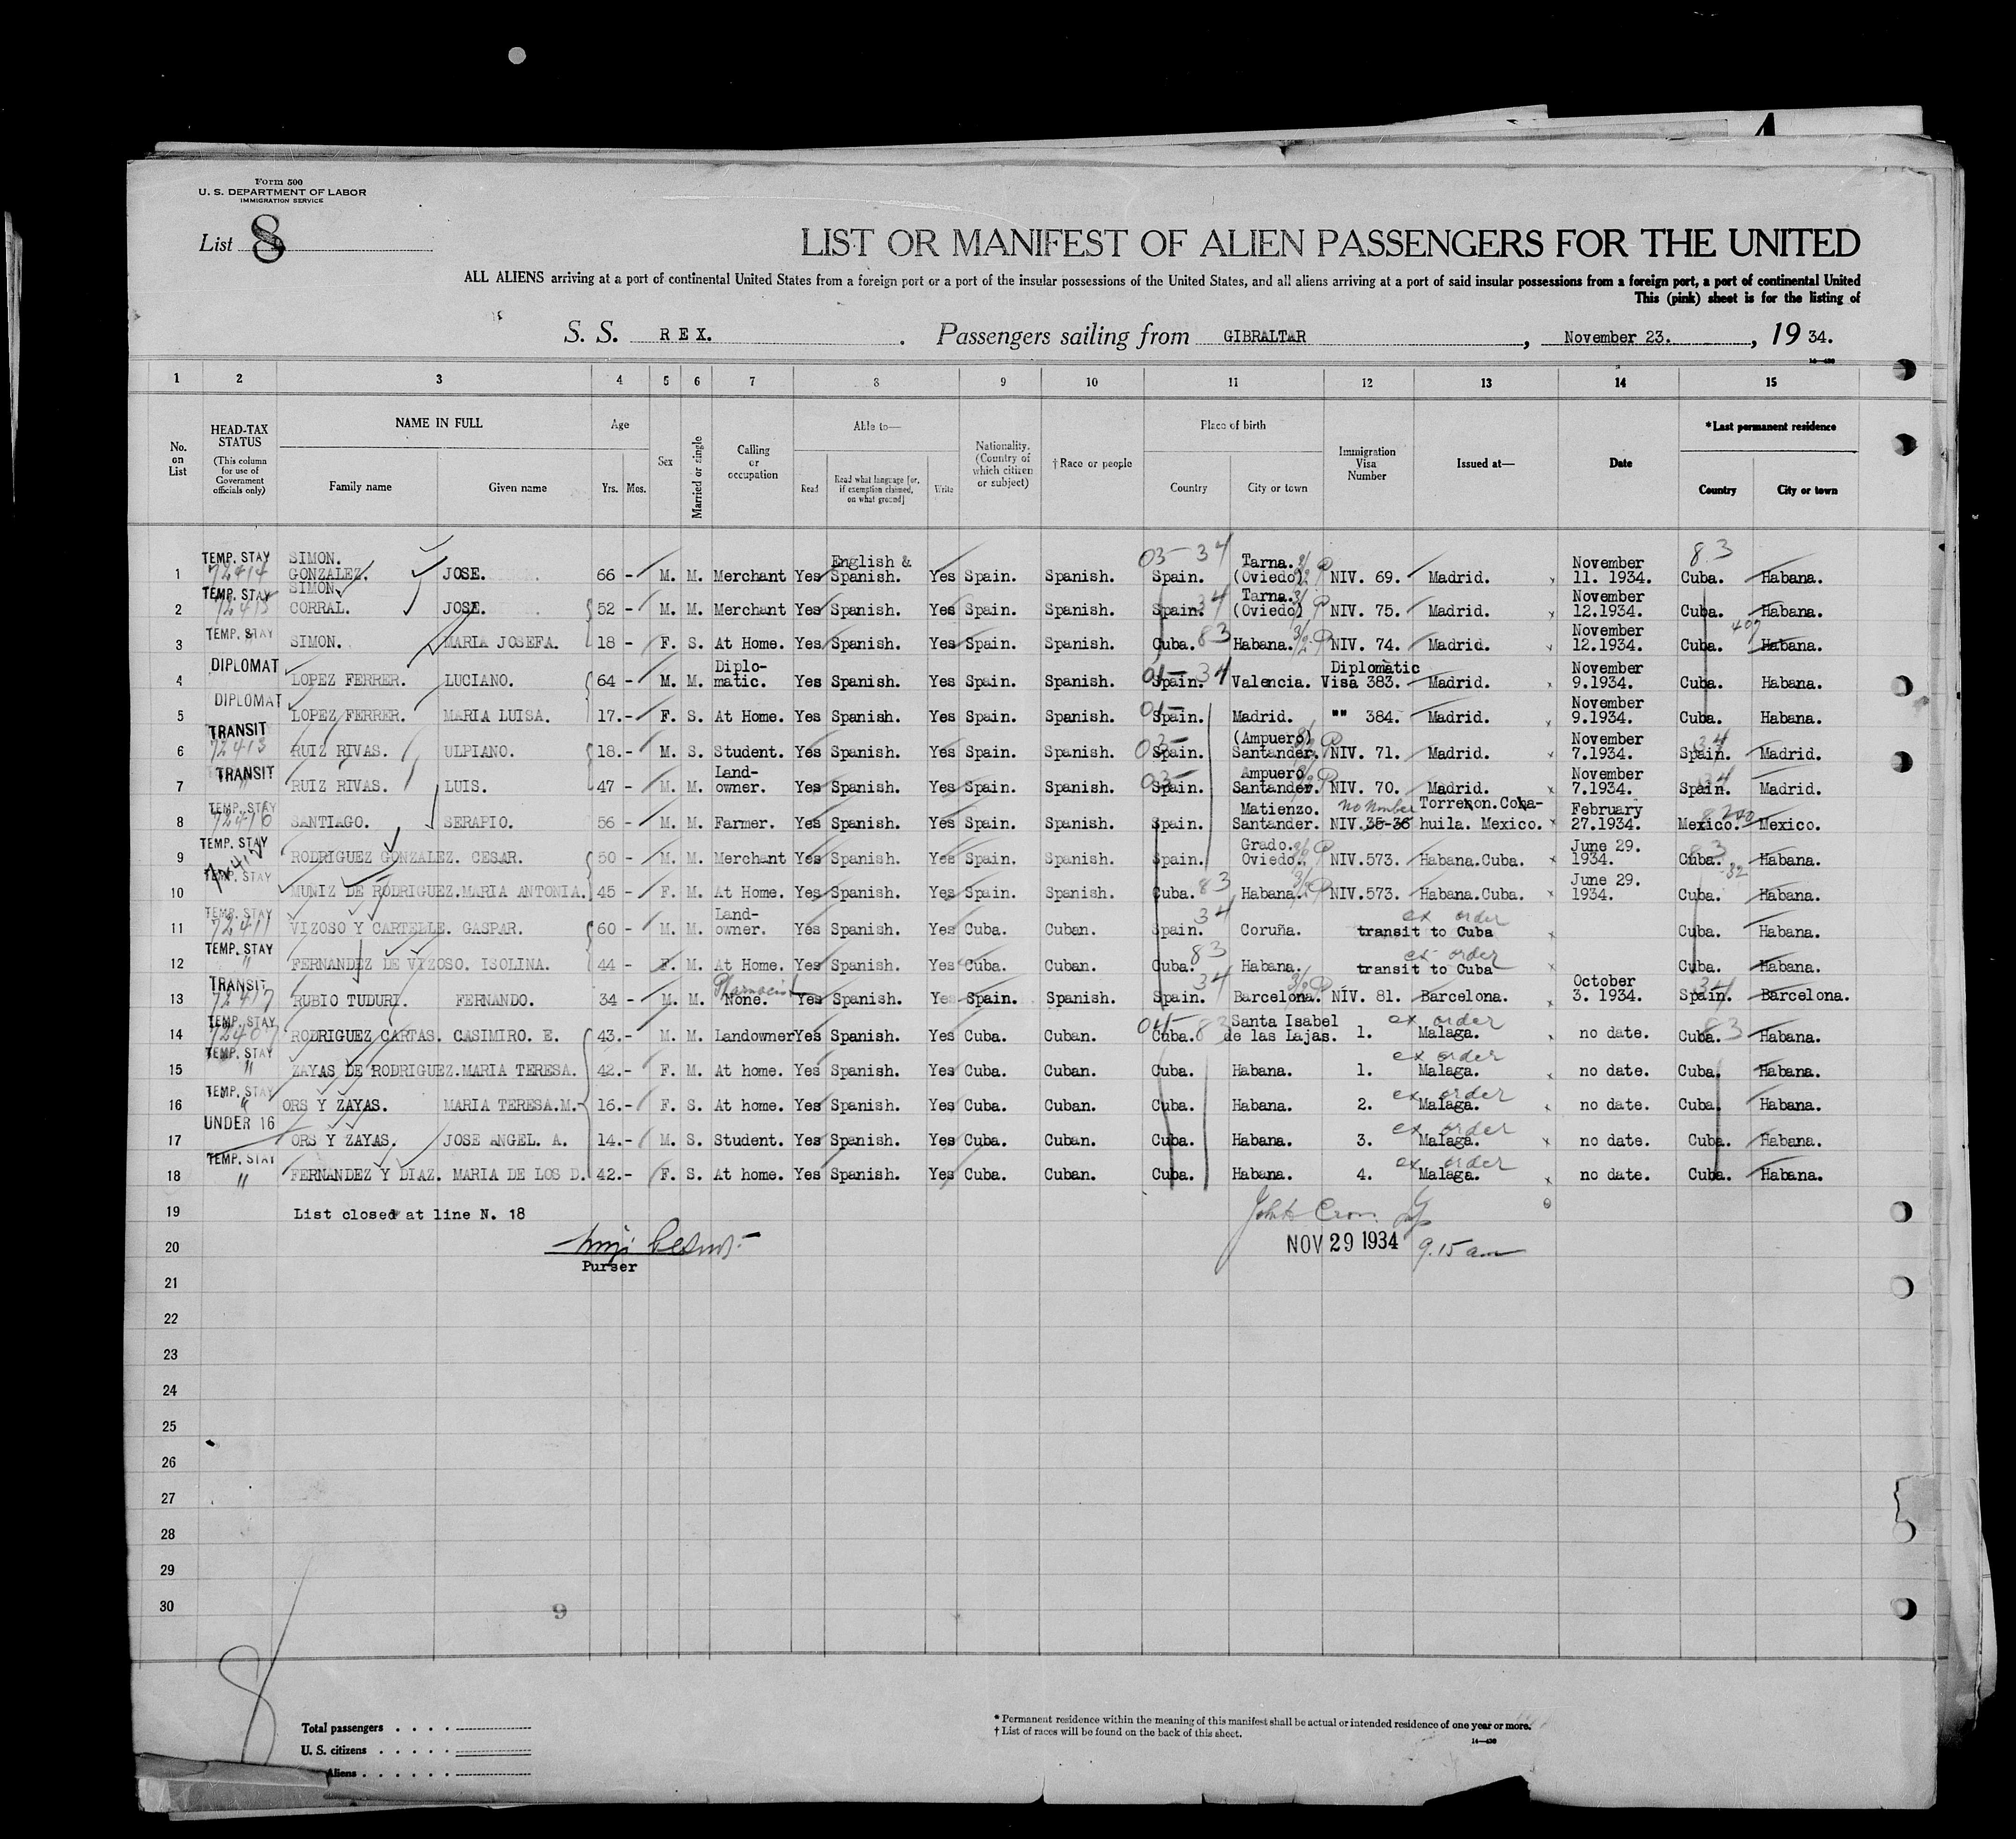 Form 500
U. S. DEPARTMENT OF LABOR
IMMIGRATION SERVICE
List 8
LIST OR MANIFEST OF ALIEN PASSENGERS FOR THE UNITED
ALL ALIENS arriving at a port of continental United States from a foreign port or a port of the insular possessions of the United States, and all aliens arriving at a port of said insular possessions from a foreign port, a port of continental United
This (pink) sheet is for the listing of
S. S. REX. Passengers sailing from GIBRALTAR, November 23., 19 34.
1 2 3 4 5 6 7 8 9 10 11 12 13 14 15
No. on List HEAD-TAX STATUS (This column for use of Government officials only) NAME IN FULL Family name Given name Age Yrs. Mos. Sex Married or single Calling or occupation Able to— Read Read what language [or, if exemption claimed, on what ground] Write Nationality. (Country of which citizen or subject) †Race or people Place of birth Country City or town Immigration Visa Number Issued at— Date *Last permanent residence Country City or town
1 TEMP. STAY 72414 SIMON. GONZALEZ. JOSE. 66 - M. M. Merchant Yes English & Spanish. Yes Spain. Spanish. 03- 34 Spain. Tarna. (Oviedo) NIV. 69. Madrid. November 11. 1934. 83 Cuba. Habana.
2 TEMP. STAY 72415 SIMON. CORRAL. JOSE. 52 - M. M. Merchant Yes Spanish. Yes Spain. Spanish. Spain. 34 Tarna. (Oviedo) NIV. 75. Madrid. November 12.1934. Cuba. Habana.
3 TEMP. STAY SIMON. MARIA JOSEFA. 18 - F. S. At Home. Yes Spanish. Yes Spain. Spanish. Cuba. 83 Habana. NIV. 74. Madrid. November 12.1934. Cuba. Habana.
4 DIPLOMAT LOPEZ FERRER. LUCIANO. 64 - M. M. Diplo- matic. Yes Spanish. Yes Spain. Spanish. Spain. 34 Valencia. Diplomatic Visa 383. Madrid. November 9.1934. Cuba. Habana.
5 DIPLOMAT LOPEZ FERRER. MARIA LUISA. 17.- F. S. At Home. Yes Spanish. Yes Spain. Spanish. Spain. Madrid. "" 384. Madrid. November 9.1934. Cuba. Habana.
6 TRANSIT 72413 RUIZ RIVAS. ULPIANO. 18.- M. S. Student. Yes Spanish. Yes Spain. Spanish. Spain. (Ampuero) Santander. NIV. 71. Madrid. November 7.1934. 34 Spain. Madrid.
7 TRANSIT " RUIZ RIVAS. LUIS. 47 - M. M. Land- owner. Yes Spanish. Yes Spain. Spanish. Spain. Ampuero Santander. NIV. 70. Madrid. November 7.1934. 34 Spain. Madrid.
8 TEMP. STAY 72416 SANTIAGO. SERAPIO. 56 - M. M. Farmer. Yes Spanish. Yes Spain. Spanish. Spain. Matienzo. Santander. no number NIV. 35-36 Torreon. Coha- huila. Mexico. February 27.1934. Mexico. Mexico.
9 TEMP. STAY RODRIGUEZ GONZALEZ. CESAR. 50 - M. M. Merchant Yes Spanish. Yes Spain. Spanish. Spain. Grado. Oviedo. NIV.573. Habana.Cuba. June 29. 1934. 83 Cuba. Habana.
10 TEMP. STAY MUNIZ DE RODRIGUEZ.MARIA ANTONIA. 45 - F. M. At Home. Yes Spanish. Yes Spain. Spanish. Cuba. 83 Habana. NIV.573. Habana.Cuba. June 29. 1934. Cuba. Habana.
11 TEMP. STAY 72411 VIZOSO Y CARTELLE. GASPAR. 60 - M. M. Land- owner. Yes Spanish. Yes Cuba. Cuban. Spain. 34 Coruña. ex order transit to Cuba Cuba. Habana.
12 TEMP. STAY " FERNANDEZ DE VIZOSO. ISOLINA. 44 - F. M. At Home. Yes Spanish. Yes Cuba. Cuban. Cuba. 83 Habana. ex order transit to Cuba Cuba. Habana.
13 TRANSIT 72417 RUBIO TUDURI. FERNANDO. 34 - M. M. Pharmacist None. Yes Spanish. Yes Spain. Spanish. Spain. 34 Barcelona. NIV. 81. Barcelona. October 3. 1934. 34 Spain. Barcelona.
14 TEMP. STAY 72407 RODRIGUEZ CARTAS. CASIMIRO. E. 43.- M. M. Landowner Yes Spanish. Yes Cuba. Cuban. 04- Cuba. 83 Santa Isabel de las Lajas. 1. ex order Malaga. no date. Cuba. 83 Habana.
15 TEMP. STAY " ZAYAS DE RODRIGUEZ.MARIA TERESA. 42.- F. M. At home. Yes Spanish. Yes Cuba. Cuban. Cuba. Habana. 1. ex order Malaga. no date. Cuba. Habana.
16 TEMP. STAY " ORS Y ZAYAS. MARIA TERESA.M. 16.- F. S. At home. Yes Spanish. Yes Cuba. Cuban. Cuba. Habana. 2. ex order Malaga. no date. Cuba. Habana.
17 UNDER 16 ORS Y ZAYAS. JOSE ANGEL. A. 14.- M. S. Student. Yes Spanish. Yes Cuba. Cuban. Cuba. Habana. 3. ex order Malaga. no date. Cuba. Habana.
18 TEMP. STAY " FERNANDEZ Y DIAZ. MARIA DE LOS D. 42.- F. S. At home. Yes Spanish. Yes Cuba. Cuban. Cuba. Habana. 4. ex order Malaga. no date. Cuba. Habana.
19 List closed at line N. 18
20 NOV 29 1934 9.15 am
Purser
21
22
23
24
25
26
27
28
29
30
9
8
Total passengers . . . .
U. S. citizens . . . . .
Aliens . . . . . .
* Permanent residence within the meaning of this manifest shall be actual or intended residence of one year or more.
† List of races will be found on the back of this sheet.
14—430